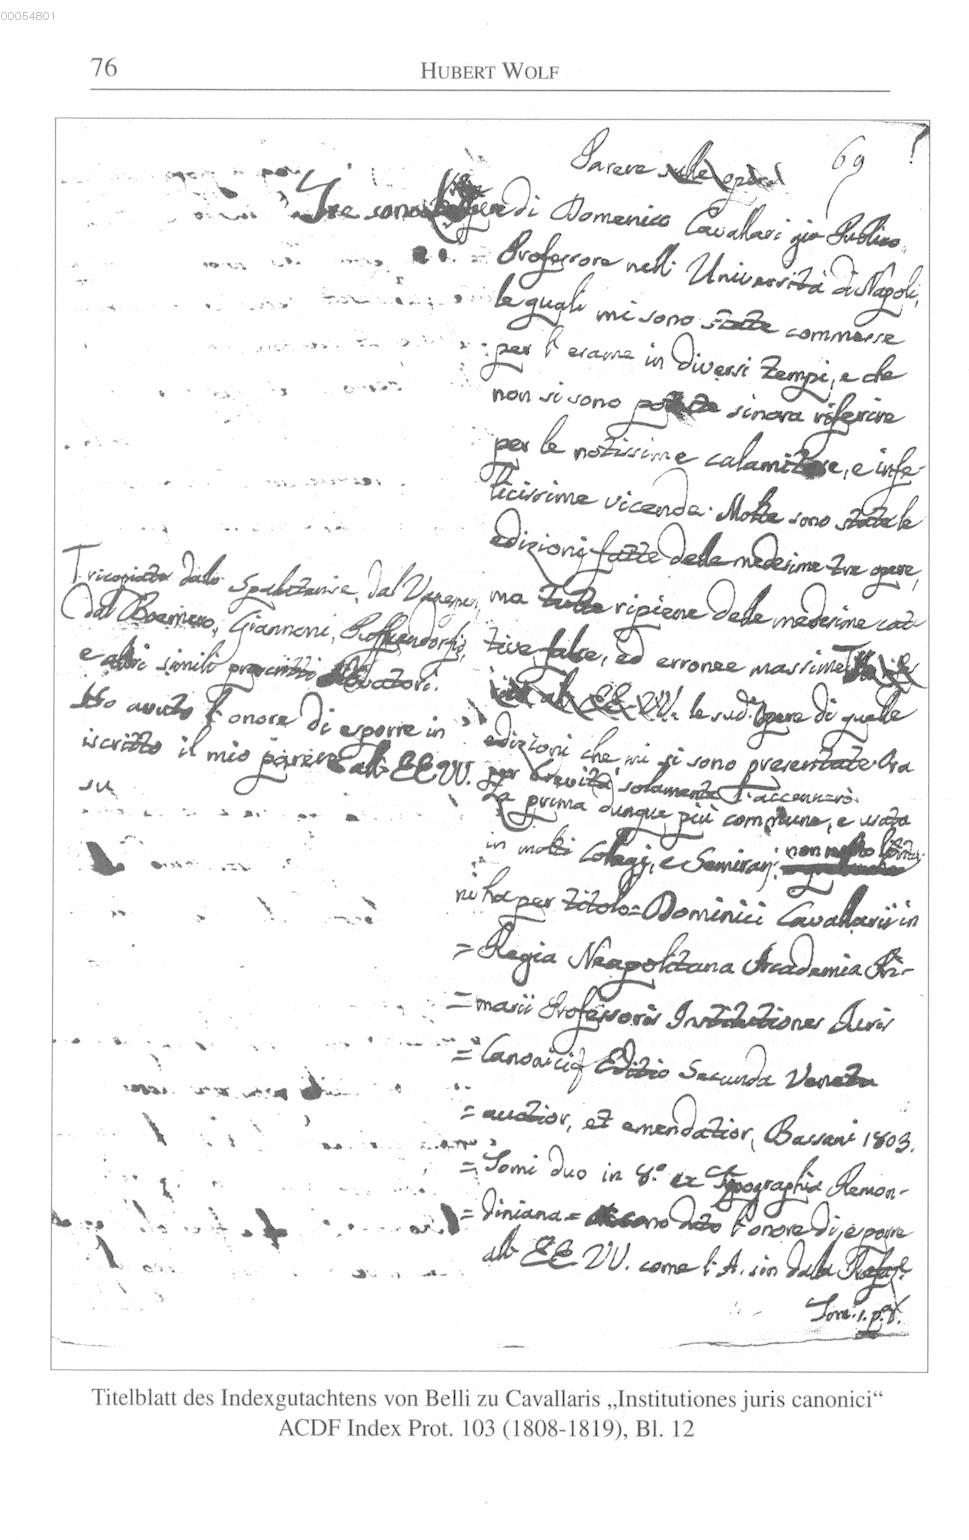 00054801
76
HUBERT WOLF
Parere sulle opere
69
Tre sono le opere di Domenico Cavallari già Publico
Professore nell' Università di Napoli,
le quali mi sono state commesse
per l'esame in diversi tempi, e che
non si sono potute sinora riferire
per le notissime calamitose, e infe-
licissime vicende. Molte sono state le
edizioni fatte delle medesime tre opere,
ma tutte ripiene delle medesime cat-
tive, false, ed erronee massime
alle EE. VV. le sud.e Opere di quelle
edizioni che mi si sono presentate Ora
per brevità solamente l'accennerò.
La prima dunque più commune, e usata
in molti Collegj, e Seminarj. non molto
ni ha per titolo = Dominici Cavallarii in
= Regia Neapolitana Academia Pri-
= marii Professoris Institutiones Juris
= Canonici Editio Secunda Veneta
= auctior, et emendatior, Bassani 1803.
= Tomi duo in 8.° ex Typographia Remon-
= diniana = dato l'onore di esporre
alle EE. VV. come l'A. sin dalla Prefaz.e
Tom. 1. p. 8.
Tricopiate dallo Spalatense, dal Vanespen,
dal Boemero, Giannoni, Puffendorfio,
e altri simili proscritti Novatori.
Ho avuto l'onore di esporre in
iscritto il mio parere alle EE. VV.
su
Titelblatt des Indexgutachtens von Belli zu Cavallaris „Institutiones juris canonici“
ACDF Index Prot. 103 (1808-1819), Bl. 12